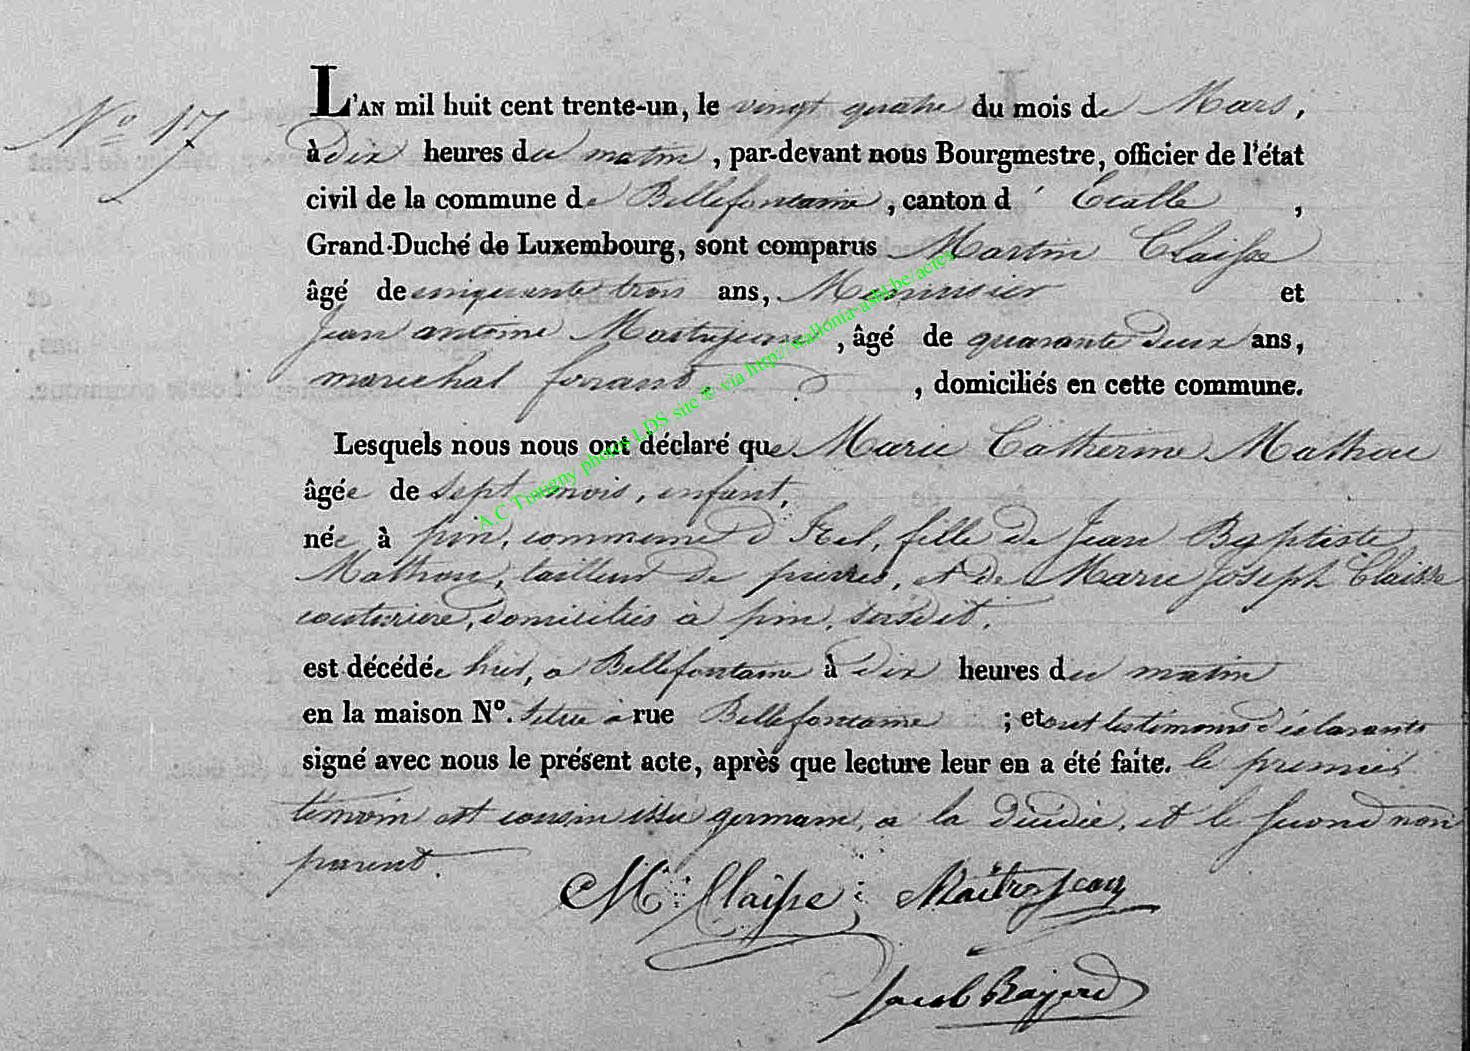 N° 17
L'AN mil huit cent trente-un, le vingt quatre du mois de Mars,
à dix heures du matin, par-devant nous Bourgmestre, officier de l'état
civil de la commune de Bellefontaine, canton d' Etalle,
Grand-Duché de Luxembourg, sont comparus Martin Claisse
âgé de cinquante trois ans, Menuisier et
Jean antoine Maitrejean, âgé de quarante deux ans,
marechal ferrant, domiciliés en cette commune.
Lesquels nous nous ont déclaré que Marie Catherine Mathou
âgée de sept mois, enfant,
née à pin, commune d' Izel, fille de Jean Baptiste
Mathou, tailleur de pierres, et de Marie Joseph Claisse
couturiere, domiciliés à pin, susdit,
est décédée hier, a Bellefontaine à dix heures du matin
en la maison N°. située à rue Bellefontaine ; et ont les témoins déclarants
signé avec nous le présent acte, après que lecture leur en a été faite. le premier
témoin est cousin issu germain, a la décédée, et le second non
parent.
M: Claisse; Maitrejean
Jacob Bayard
A.C Tintigny photos LDS site & via http://wallonia-asbl.be/actes